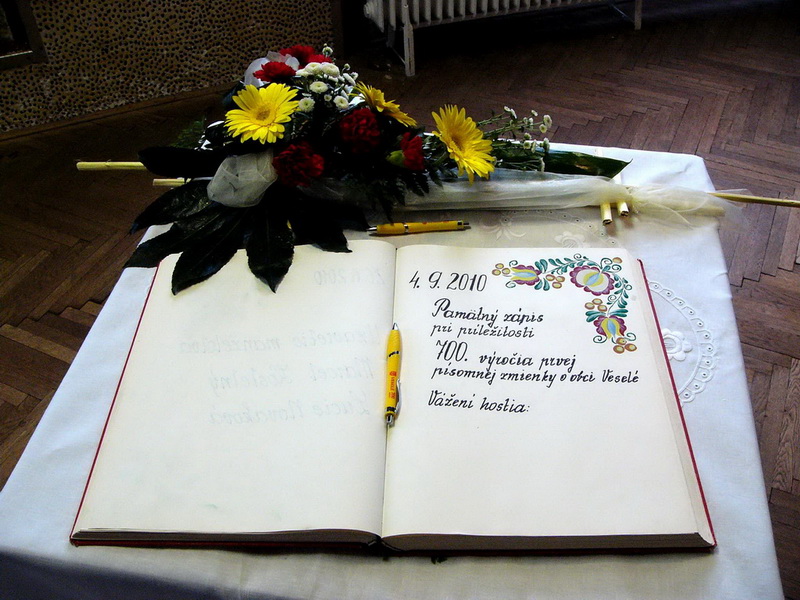 4. 9. 2010
Pamätný zápis
pri príležitosti
700. výročia prvej
písomnej zmienky o obci Veselé
Vážení hostia: